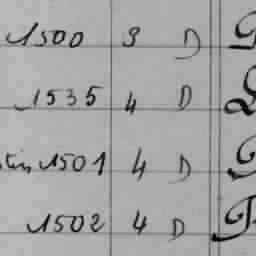 1500 3 D
1535 4 D
1501 4 D
1502 4 D